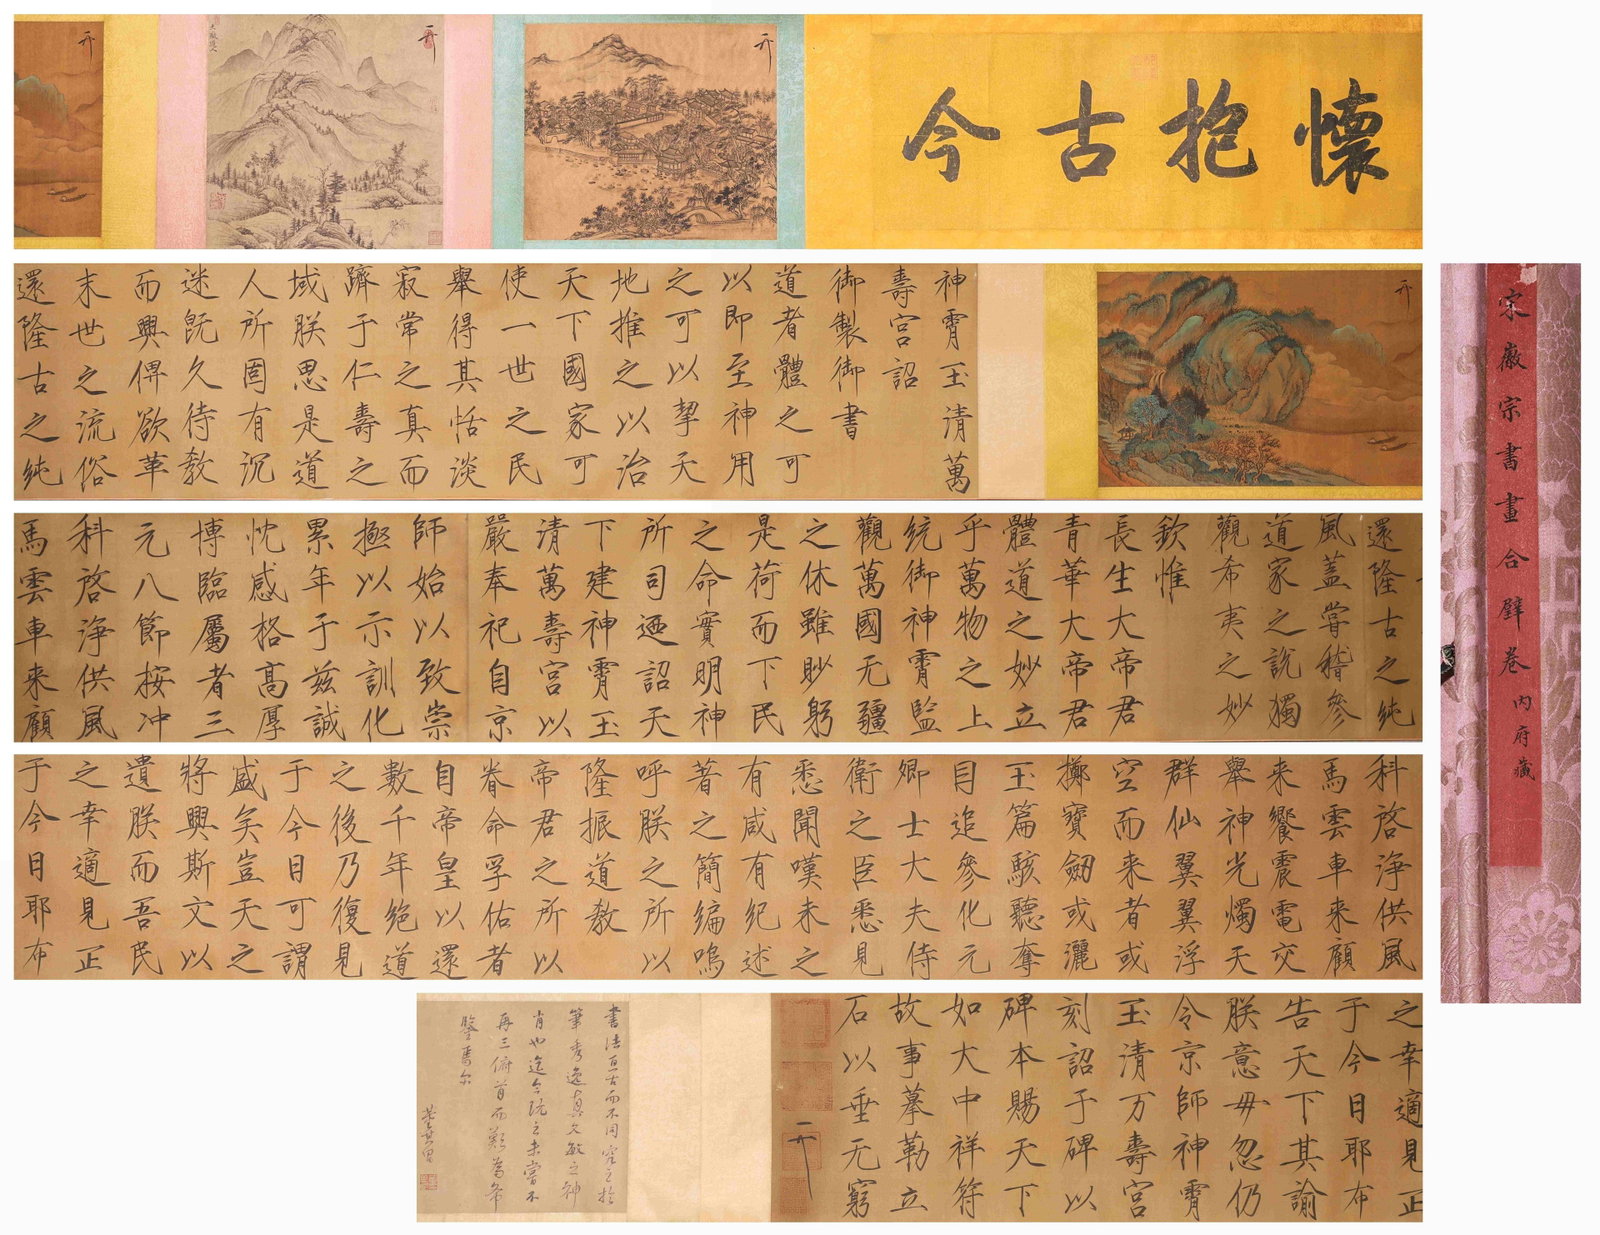 懷抱古今
天下一人
天下一人
神霄玉清萬
壽宮詔
御製御書
道者體之可
以即至神用
之可以挈天
地推之以治
天下國家可
使一世之民
舉得其恬淡
寂常之真而
躋于仁壽之
域朕思是道
人所固有沉
迷既久待教
而興俾欲革
末世之流俗
還隆古之純
還隆古之純
風蓋嘗稽參
道家之說獨
觀希夷之妙
欽惟
長生大帝君
青華大帝君
體道之妙立
乎萬物之上
統御神霄監
觀萬國无疆
之休雖眇躬
是荷而下民
之命實明神
所司迺詔天
下建神霄玉
清萬壽宮以
嚴奉祀自京
師始以致崇
極以示訓化
累年于茲誠
忱感格高厚
博臨屬者三
元八節按冲
科啓淨供風
馬雲車来顧
科啓淨供風
馬雲車来顧
来饗震電交
舉神光燭天
群仙翼翼浮
空而来者或
擲寶劍或灑
玉篇駭聽奪
目追參化元
卿士大夫侍
衛之臣悉見
悉聞嘆未之
有咸有紀述
著之簡編嗚
呼朕之所以
隆振道教
帝君之所以
眷命孚佑者
自帝皇以還
數千年絕道
之後乃復見
于今日可謂
盛矣豈天之
將興斯文以
遺朕而吾民
之幸適見正
于今日耶布
之幸適見正
于今日耶布
告天下其諭
朕意毋忽仍
令京師神霄
玉清万壽宮
刻詔于碑以
碑本賜天下
如大中祥符
故事摹勒立
石以垂无窮
書法亘古而不同
董其昌
宋徽宗書畫合璧卷 內府藏